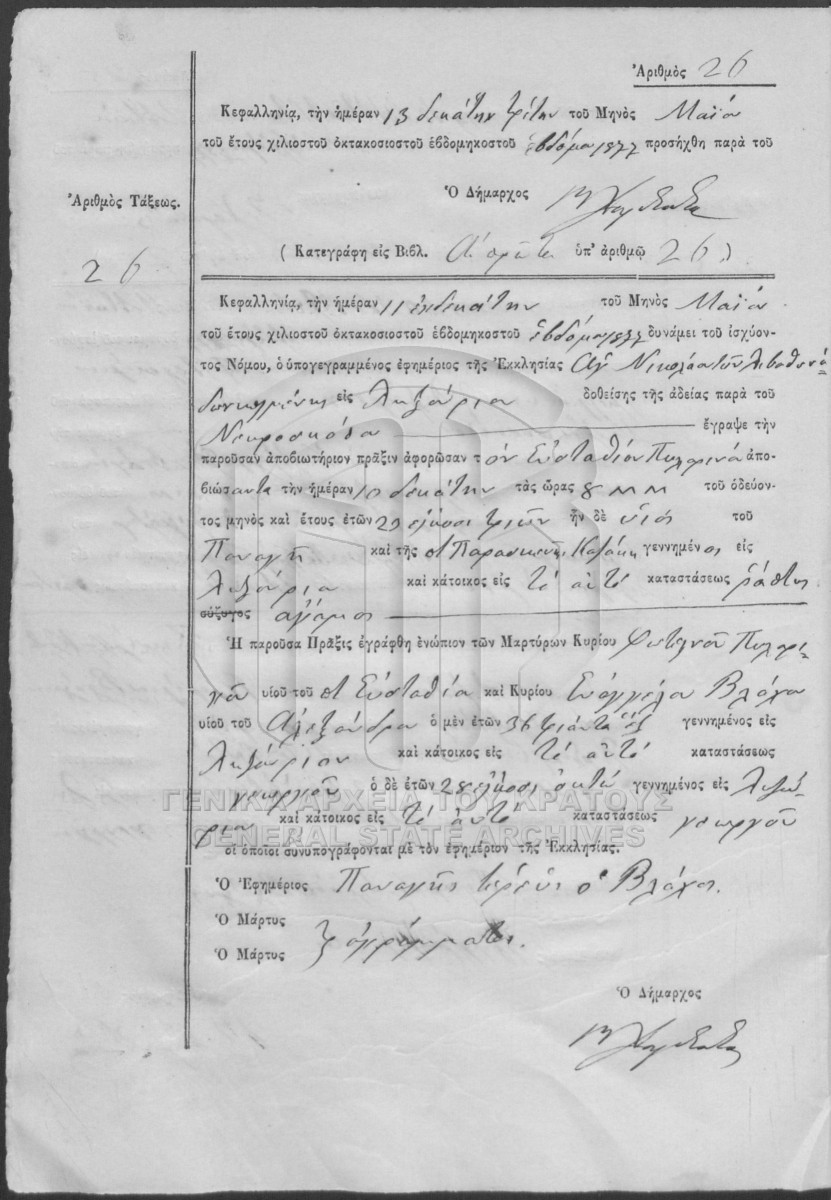 Ἀριθμὸς 26
Κεφαλληνίᾳ, τὴν ἡμέραν 13 δεκάτην τρίτην τοῦ Μηνὸς Μαΐου
τοῦ ἔτους χιλιοστοῦ ὀκτακοσιοστοῦ ἑβδομηκοστοῦ ἑβδόμου 1877 προσήχθη παρὰ τοῦ
Ὁ Δήμαρχος
Ἀριθμὸς Τάξεως.
26
( Κατεγράφη εἰς Βιβλ. ὑπ' ἀριθμῷ 26 )
Κεφαλληνίᾳ, τὴν ἡμέραν 11 ἑνδεκάτην τοῦ Μηνὸς Μαΐου
τοῦ ἔτους χιλιοστοῦ ὀκτακοσιοστοῦ ἑβδομηκοστοῦ ἑβδόμου 1877 δυνάμει τοῦ ἰσχύον-
τος Νόμου, ὁ ὑπογεγραμμένος ἐφημέριος τῆς Ἐκκλησίας Ἁγ Νικολάου τῶν
εἰς Ληξούριον δοθείσης τῆς ἀδείας παρὰ τοῦ
Νεκροσκόπου ἔγραψε τὴν
παροῦσαν ἀποβιωτήριον πρᾶξιν ἀφορῶσαν τὸν Εὐστάθιον Πυλαρινὸν ἀπο-
βιώσαντα τὴν ἡμέραν 10 δεκάτην τὰς ὥρας 8 μμ τοῦ ὁδεύον-
τος μηνὸς καὶ ἔτους ἐτῶν εἴκοσι τριῶν ἦν δὲ υἱὸς τοῦ
Παναγῆ καὶ τῆς Παρασκευῆς γεννημένος εἰς
Ληξούριον καὶ κάτοικος εἰς τὸ αὐτό καταστάσεως ῥάπτης
σύζυγος ἄγαμος
Ἡ παροῦσα Πρᾶξις ἐγράφθη ἐνώπιον τῶν Μαρτύρων Κυρίου Πυλαρι-
νοῦ υἱοῦ τοῦ Εὐσταθίου καὶ Κυρίου Εὐαγγέλου Βλάχου
υἱοῦ τοῦ Ἀλεξάνδρου ὁ μὲν ἐτῶν 36 τριάντα ἕξ γεννημένος εἰς
Ληξούριον καὶ κάτοικος εἰς τὸ αὐτό καταστάσεως
γεωργοῦ ὁ δὲ ἐτῶν 28 εἴκοσι ὀκτώ γεννημένος εἰς Ληξού-
ριον καὶ κάτοικος εἰς τὸ αὐτό καταστάσεως γεωργοῦ
οἱ ὁποῖοι συνυπογράφονται μὲ τὸν ἐφημέριον τῆς Ἐκκλησίας.
ΓΕΝΙΚΑ ΑΡΧΕΙΑ ΤΟΥ ΚΡΑΤΟΥΣ
GENERAL STATE ARCHIVES
Ὁ Ἐφημέριος Παναγῆς ἱερεὺς ὁ Βλάχος.
Ὁ Μάρτυς
Ὁ Μάρτυς ἀγράμματοι.
Ὁ Δήμαρχος